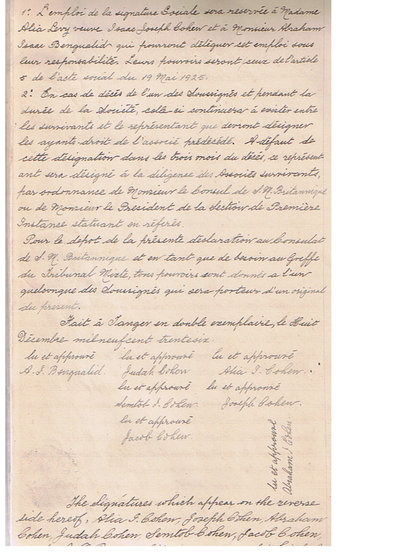 1º. L'emploi de la signature Sociale sera reservée à Madame
Alia Levy veuve Isaac Joseph Cohen et à Monsieur Abraham
Isaac Benqualid qui pourront déléguer cet emploi sous
leur responsabilité. Leurs pouvoirs seront ceux de l'article
5 de l'acte social du 19 Mai 1925.
2º. En cas de décès de l'un des Soussignés et pendant la
durée de la Société, celle-ci continuera à exister entre
les survivants et le représentant que devront désigner
les ayants-droit de l'associé prédécédé. A défaut de
cette désignation dans les trois mois du décès, ce représent
ant sera désigné à la diligence des Associés survivants,
par ordonnance de Monsieur le Consul de S.M. Britannique
ou de Monsieur le President de la Section de Première
Instance statuant en référés.
Pour le depot de la présente déclaration au Consulat
de S.M. Britannique et en tant que de besoin au Greffe
du Tribunal Mixte, tous pouvoirs sont donnés à l'un
quelconque des Soussignés qui sera porteur d'un original
du present.
Fait à Tanger en double exemplaire, le Huit
Décembre mil neuf cent trente six.
lu et approuvé lu et approuvé lu et approuvé
A. I. Benqualid Judah Cohen Alia I. Cohen.
lu et approuvé lu et approuvé
Semtob I. Cohen. Joseph Cohen.
lu et approuvé
Jacob Cohen
lu et approuvé
Abraham I. Cohen
The Signatures which appear on the reverse
side hereof, Alia I. Cohen, Joseph Cohen, Abraham
Cohen, Judah Cohen, Semtob Cohen, Jacob Cohen,